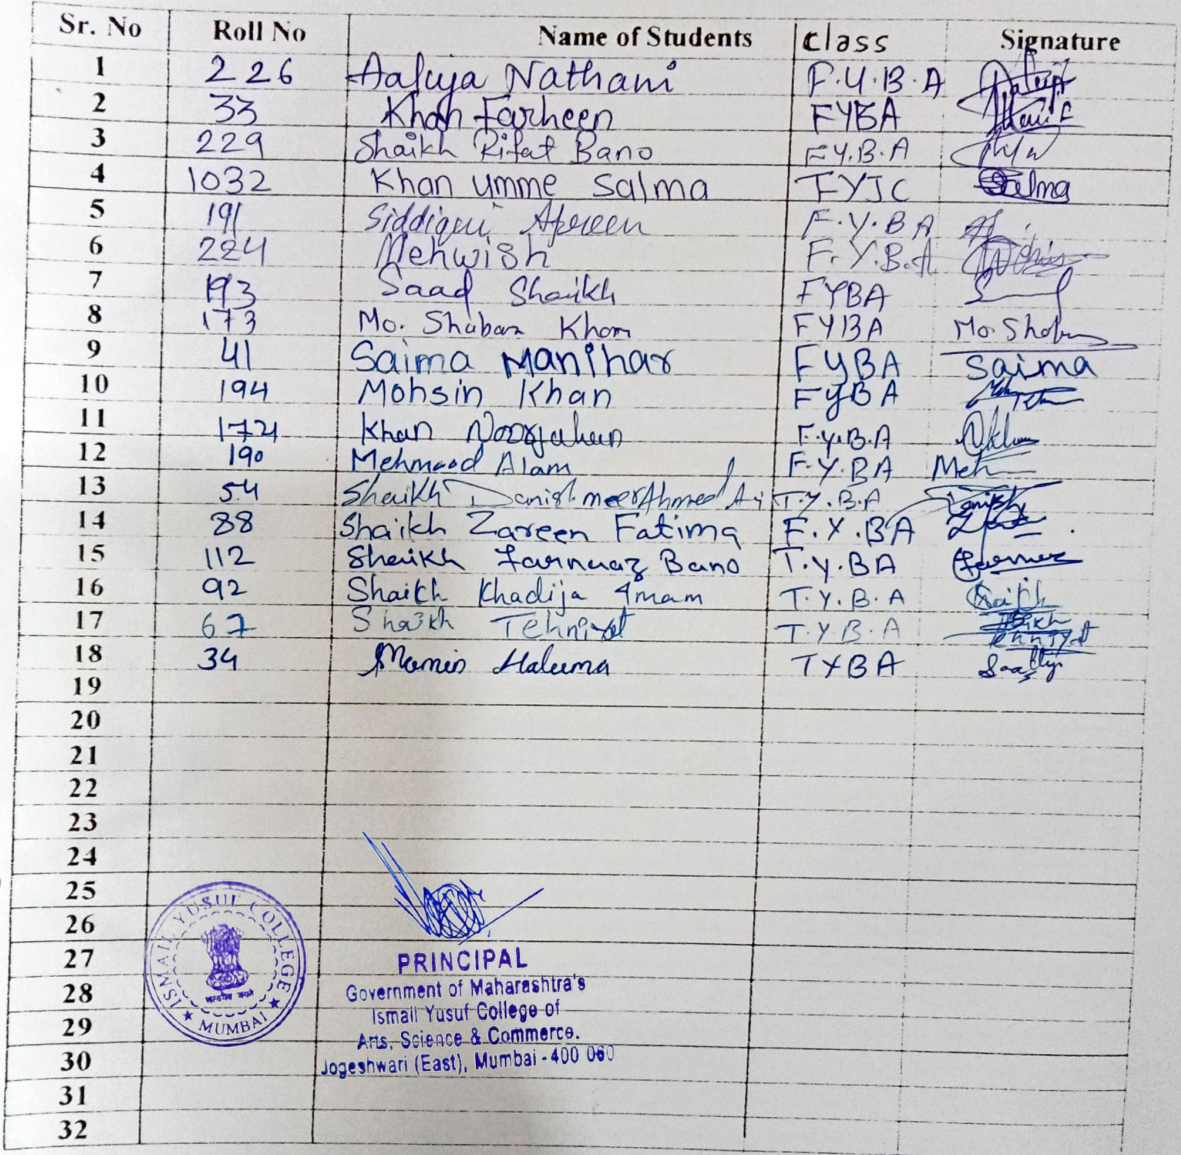 Sr. No Roll No Name of Students Class Signature
1 226 Aafiya Nathani F.Y.B.A
2 33 Khan Farheen FYBA
3 229 Shaikh Rifat Bano F.Y.B.A
4 1032 Khan Umme Salma FYJC Salma
5 191 Siddiqui Afreen F.Y.BA
6 224 Mehwish F.Y.B.A
7 193 Saad Shaikh FYBA
8 173 Mo. Shaban Khan FYBA
9 41 Saima Manihar FYBA Saima
10 194 Mohsin Khan FYBA
11 Khan Noorjahan F.Y.B.A
12 190 Mehmood Alam F.Y.BA Meh
13 54 Shaikh T.Y.B.A
14 88 Shaikh Zareen Fatima F.Y.BA
15 112 Shaikh Farnaaz Bano T.Y.BA
16 92 Shaikh Khadija Imam T.Y.B.A
17 67 Shaikh Tehniyat T.Y.B.A
18 34 Momin Haleema TYBA
19
20
21
22
23
24
25
26
27
28
29
30
31
32
ISMAIL YUSUF COLLEGE
★ MUMBAI ★
PRINCIPAL
Government of Maharashtra's
Ismail Yusuf College of
Arts, Science & Commerce.
Jogeshwari (East), Mumbai - 400 060